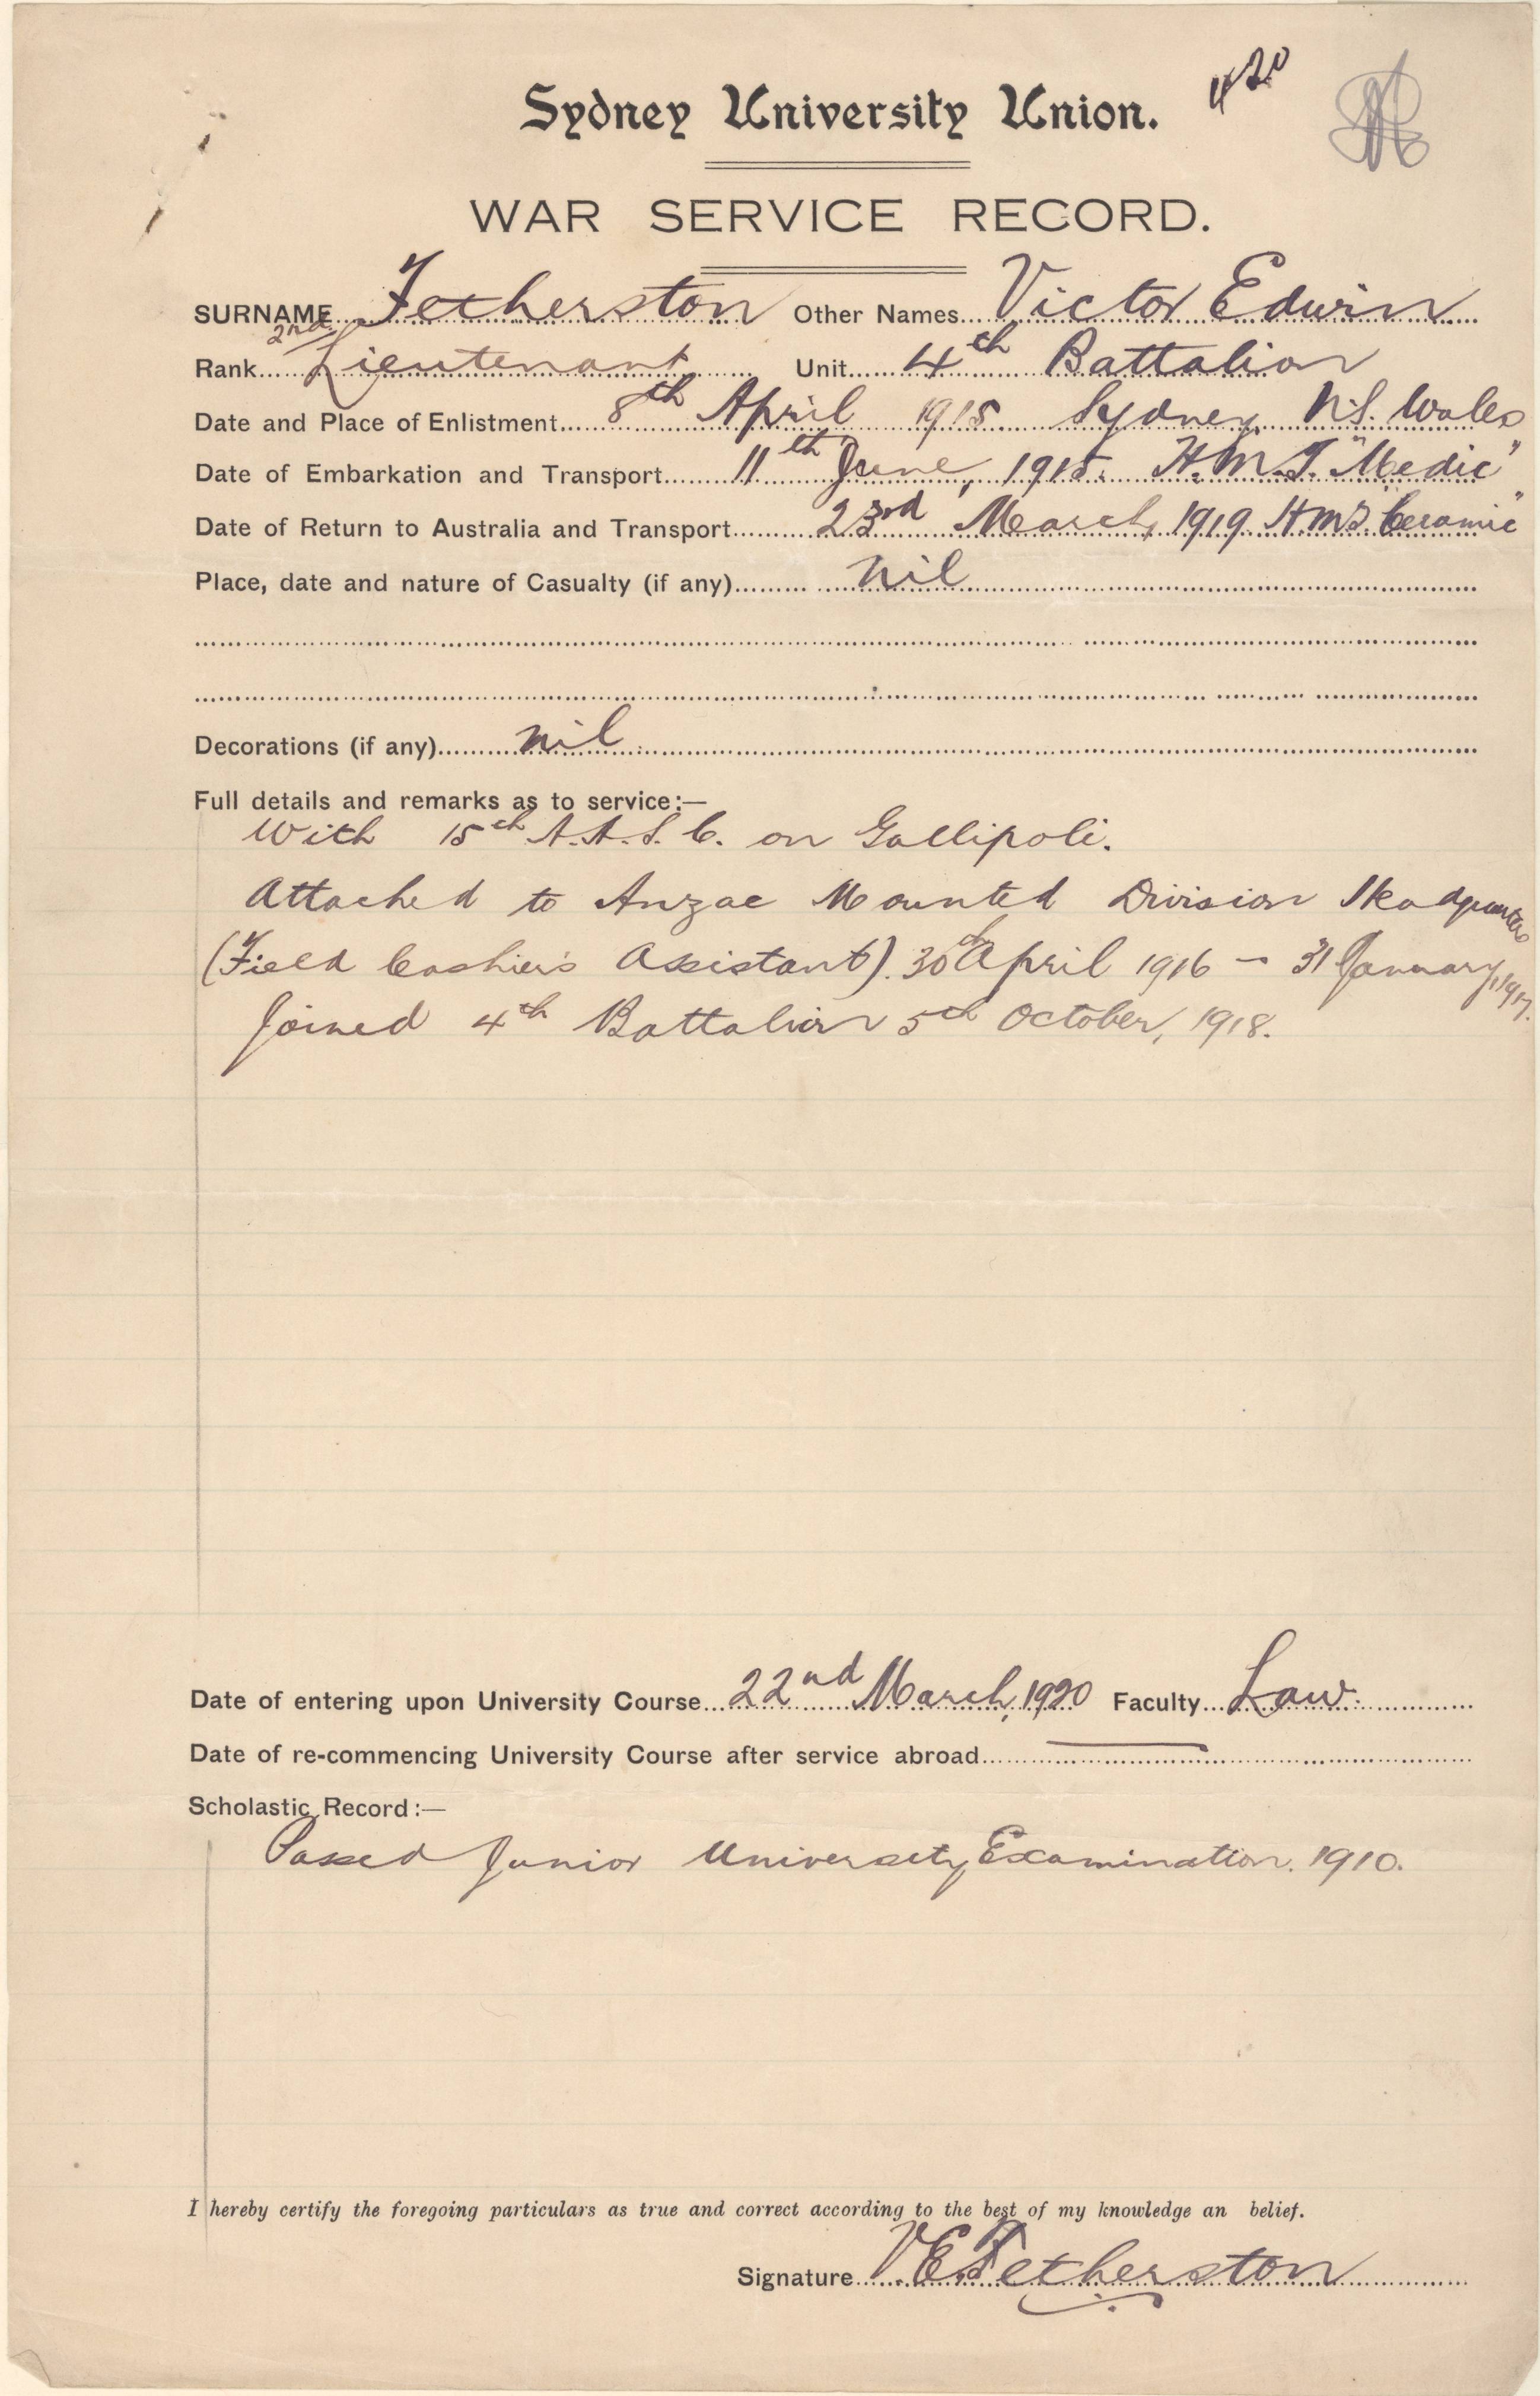 Sydney University Union.
WAR SERVICE RECORD.
SURNAME Fetherston Other Names Victor Edwin
Rank 2nd Lieutenant Unit 4th Battalion
Date and Place of Enlistment 8th April 1915 Sydney, N.S. Wales
Date of Embarkation and Transport 11th June, 1915. H.M.T. "Medic"
Date of Return to Australia and Transport 23rd March, 1919. H.M.S. "Ceramic"
Place, date and nature of Casualty (if any) Nil
Decorations (if any) Nil
Full details and remarks as to service:—
With 15th A.A.S.C. on Gallipoli.
Attached to Anzac Mounted Division Headquarters
(Field Cashier's Assistant). 30th April 1916 - 31 January, 1917.
Joined 4th Battalion 5th October, 1918.
Date of entering upon University Course 22nd March, 1920 Faculty Law.
Date of re-commencing University Course after service abroad —
Scholastic Record:—
Passed Junior University Examination. 1910.
I hereby certify the foregoing particulars as true and correct according to the best of my knowledge an belief.
Signature V E Fetherston